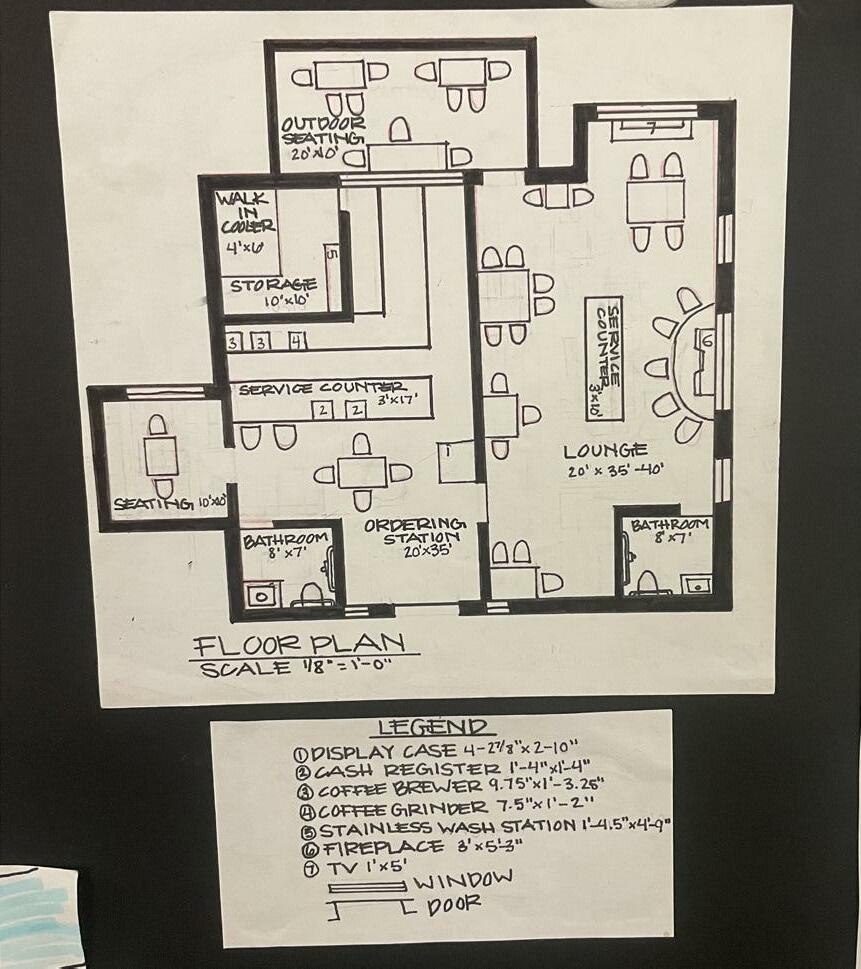 OUTDOOR
SEATING
20'x10'
7
WALK
IN
COOLER
4'x6'
5
STORAGE
10'x10'
3 3 4
SERVICE COUNTER
3'x17'
2 2
SERVICE
COUNTER
3'x10'
6
1
LOUNGE
20' x 35'-40'
SEATING 10'x10'
ORDERING
STATION
20'x35'
BATHROOM
8'x7'
BATHROOM
8'x7'
FLOOR PLAN
SCALE 1/8" = 1'-0"
LEGEND
① DISPLAY CASE 4-2 7/8" x 2-10"
② CASH REGISTER 1'-4"x1'-4"
③ COFFEE BREWER 9.75"x1'-3.25"
④ COFFEE GRINDER 7.5"x1'-2"
⑤ STAINLESS WASH STATION 1'-4.5"x4'-9"
⑥ FIREPLACE 3'x5'-3"
⑦ TV 1'x5'
WINDOW
DOOR